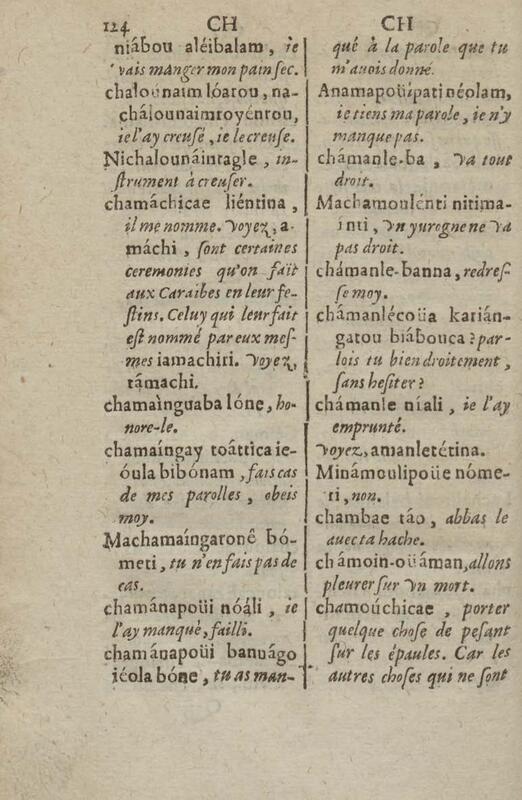 124 CH CH
niábou aléibalam, ie
vais manger mon pain sec.
chalounaim lóarou, na-
chálounaimroyénrou,
ie l'ay creusé, ie le creuse.
Nichalounáintagle, in-
ſtrument à creuſer.
chamáchicae liéntina,
il me nomme. Voyez, a-
máchi, ſont certaines
ceremonies qu'on fait
aux Caraibes en leur fe-
ſtins. Celuy qui leur fait
eſt nommé par eux meſ-
mes iamachiri. Voyez,
támachi.
chamainguaba lóne, ho-
nore-le.
chamaíngay toáttica ie-
óula bibónam, fais cas
de mes parolles, obeis
moy.
Machamaíngaronê bó-
meti, tu n'en fais pas de
cas.
chamánapoüi nóáli, ie
l'ay manqué, failli.
chamánapoüi banuágo
iéola bóne, tu as man-
qué à la parole que tu
m'auois donné.
Anamapoüipati néolam,
ie tiens ma parole, ie n'y
manque pas.
chámanle-ba, Va tout
droit.
Machamoulénti nitima-
inti, Vn yurogne ne Va
pas droit.
chámanle-banna, redreſ-
ſe moy.
chámanlécoüa karián-
gatou biábouca? par-
lois tu bien droitement,
ſans heſiter?
chámanle níali, ie l'ay
emprunté.
Voyez, amanletétina.
Minámoulipoüe nóme-
ti, non.
chambae táo, abbas le
auec ta hache.
chámoin-oüáman, allons
pleurer ſur Vn mort.
chamoúchicae, porter
quelque choſe de peſant
ſur les épaules. Car les
autres choſes qui ne ſont